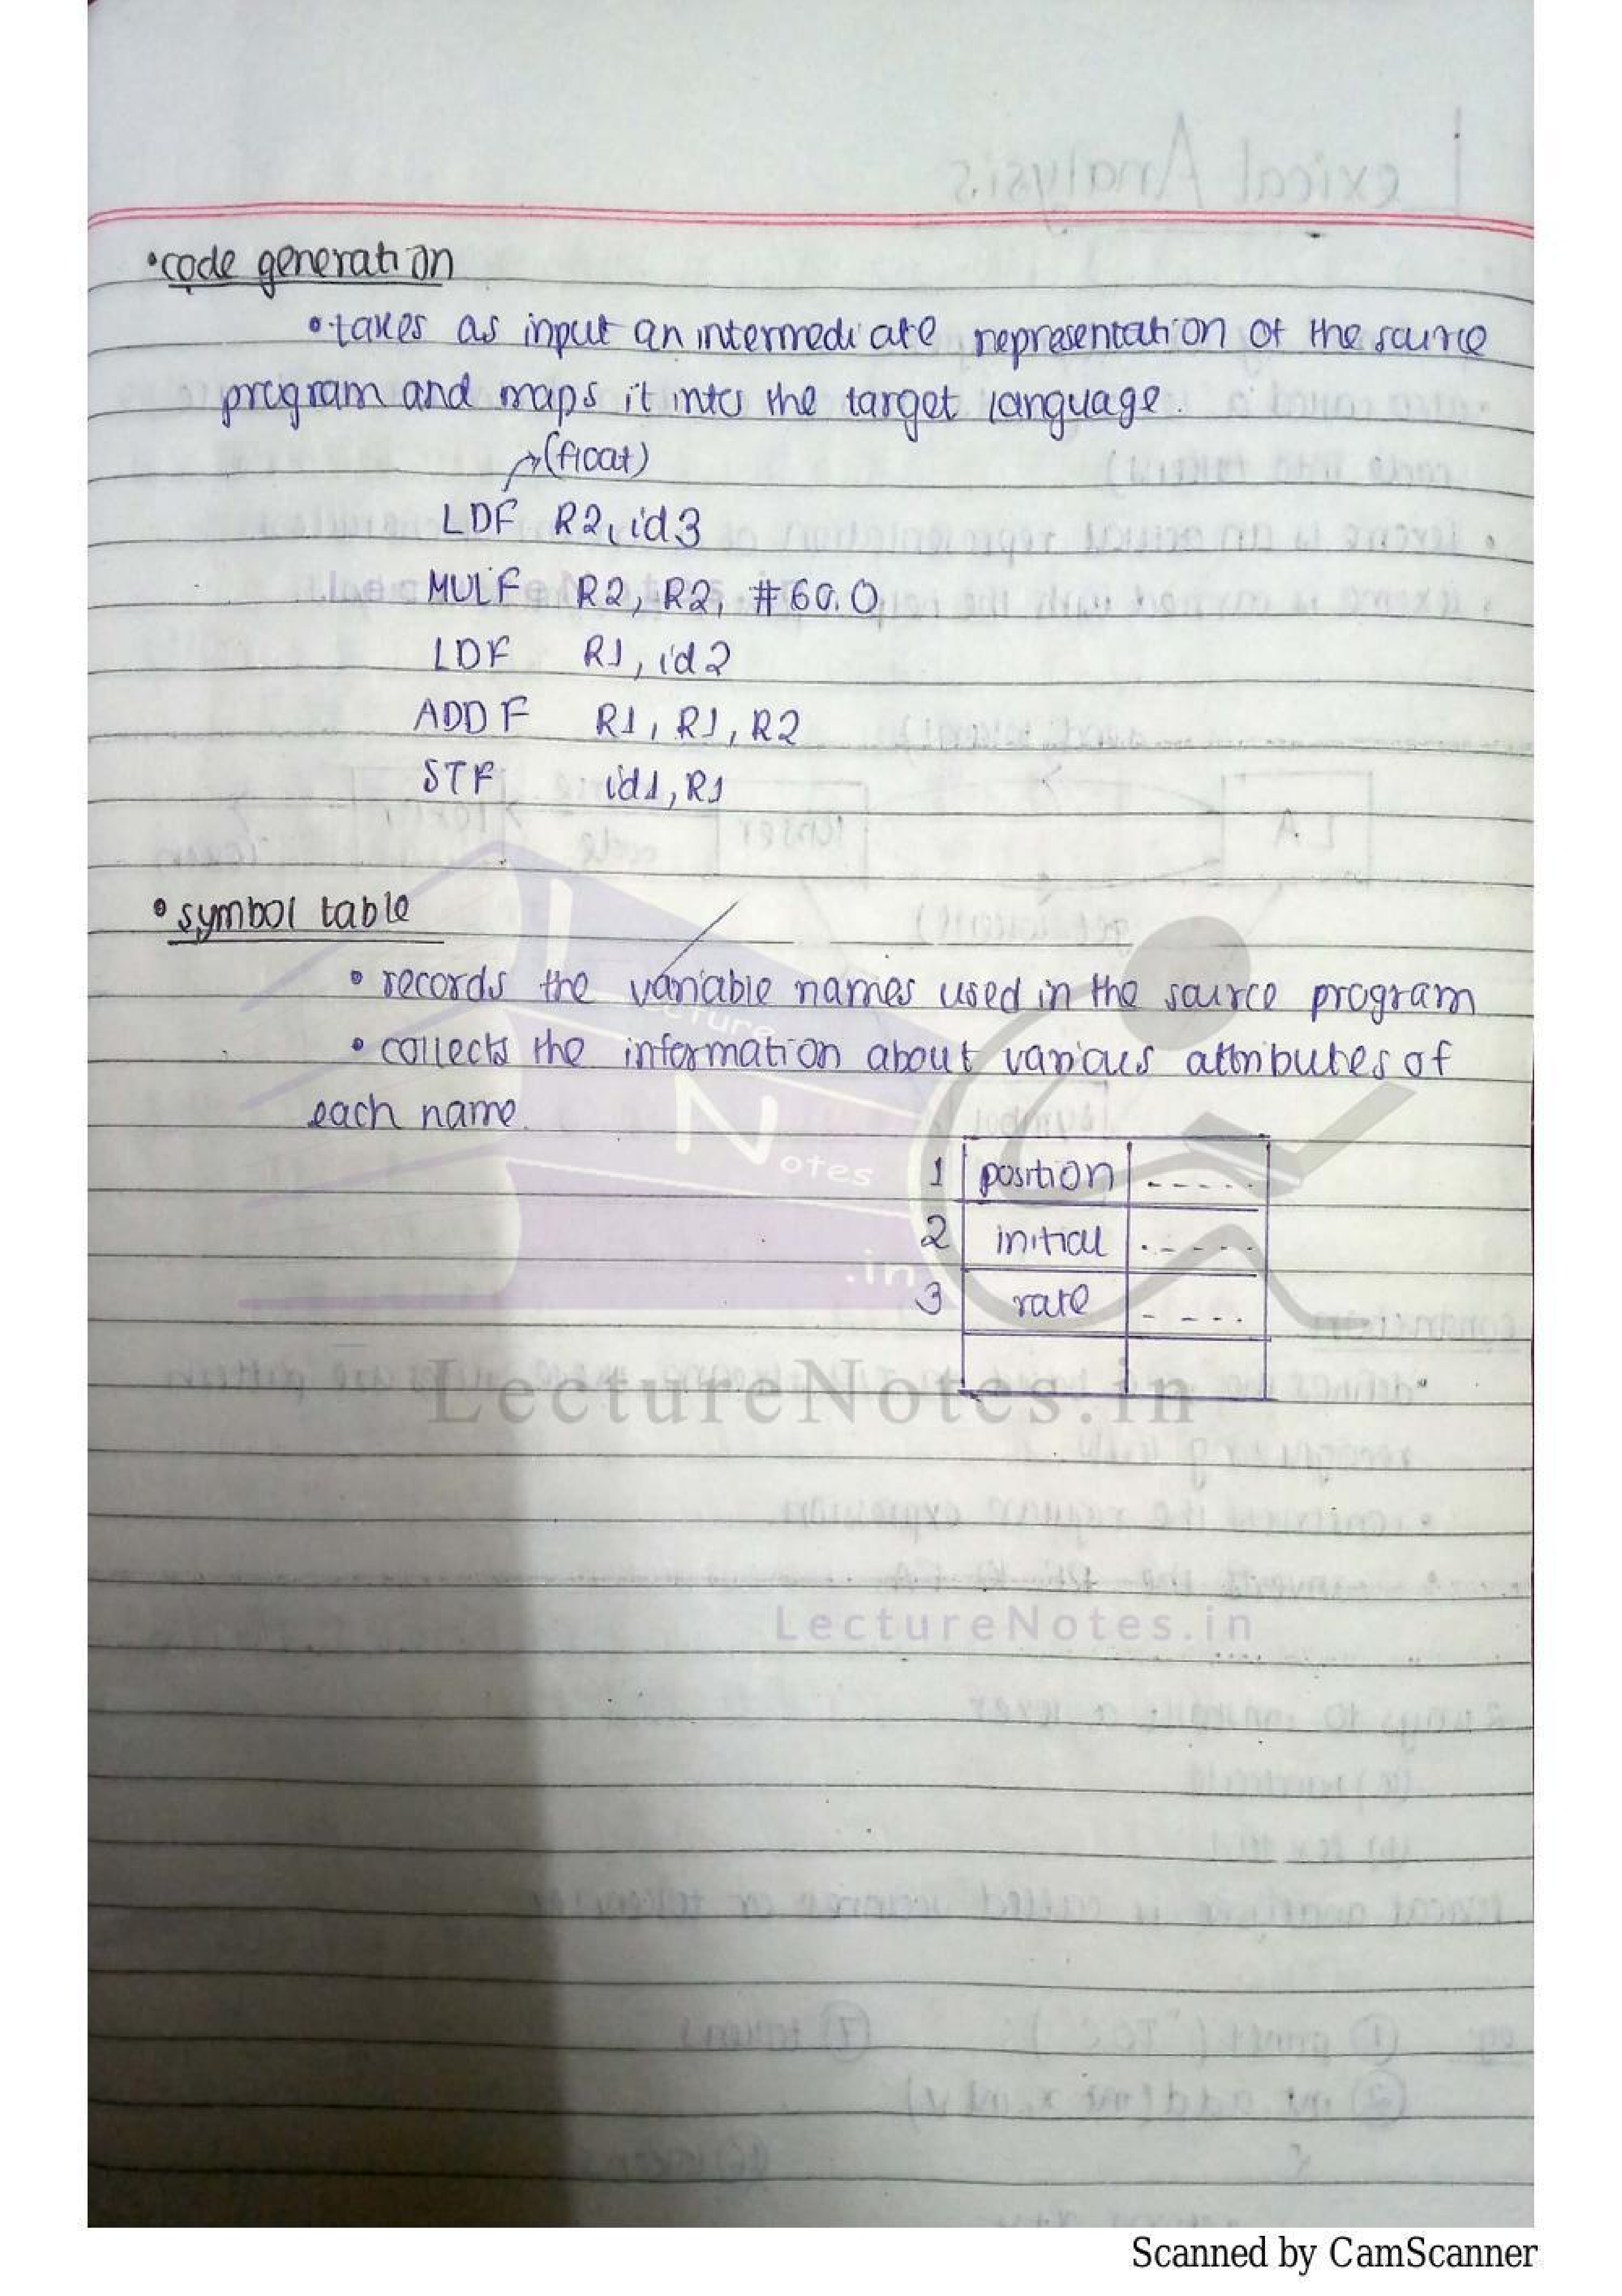 •code generation
•takes as input an intermediate representation of the source
program and maps it into the target language.
→(float)
LDF R2, id3
MULF R2, R2, #60.0
LDF R1, id2
ADDF R1, R1, R2
STF id1, R1
• symbol table
• records the variable names used in the source program
• collects the information about various attributes of
each name.
1 position -----
2 initial -----
3 rate ----
Lecture
Notes
.in
LectureNotes.in
LectureNotes.in
Scanned by CamScanner